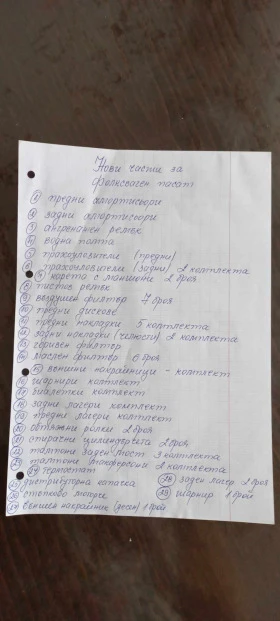 Нови части за
фолксваген пасат
1 предни амортисьори
2 задни амортисьори
3 ангренажен ремък
4 водна помпа
5 прахоуловители (предни)
6 прахоуловители (задни) 2 комплекта
7 карета с маншони 2 броя
8 пистов ремък
9 въздушен филтър 7 броя
10 предни дискове
11 предни накладки 5 комплекта
12 задни накладки (челюсти) 2 комплекта
13 горивен филтър
14 маслен филтър 6 броя
15 външни накрайници - комплект
16 шарнири комплект
17 биалетки комплект
18 задни лагери комплект
19 предни лагери комплект
20 обтяжни ролки 2 броя
21 спирачни цилиндърчета 2 броя
22 тампони заден мост 3 комплекта
23 тампони макферсони 2 комплекта
24 термостат
25 дистрибуторна капачка
26 стопково мигаче
27 външен накрайник (десен) 1 брой
28 заден лагер 2 броя
29 шарнир 1 брой